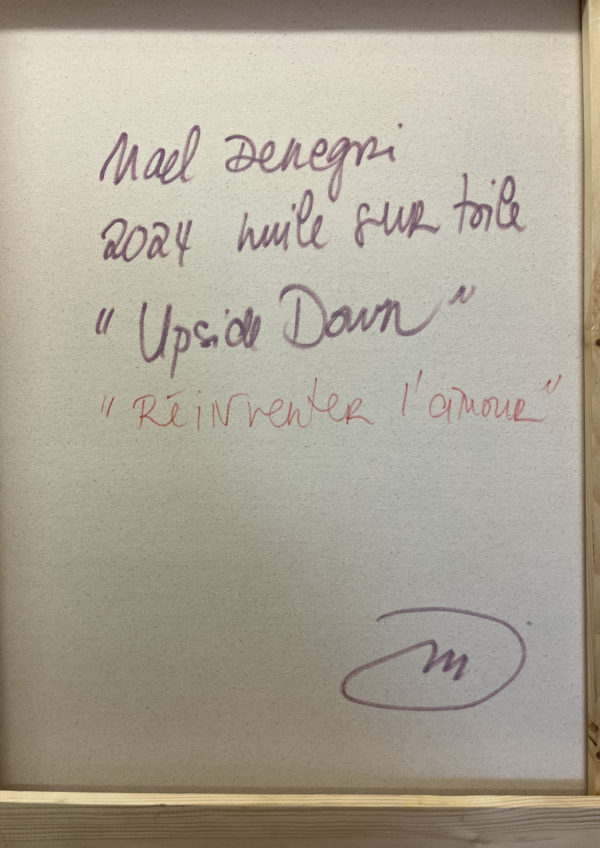 Mael Denegri
2024 huile sur toile
"Upside Down"
"Réinventer l'amour"